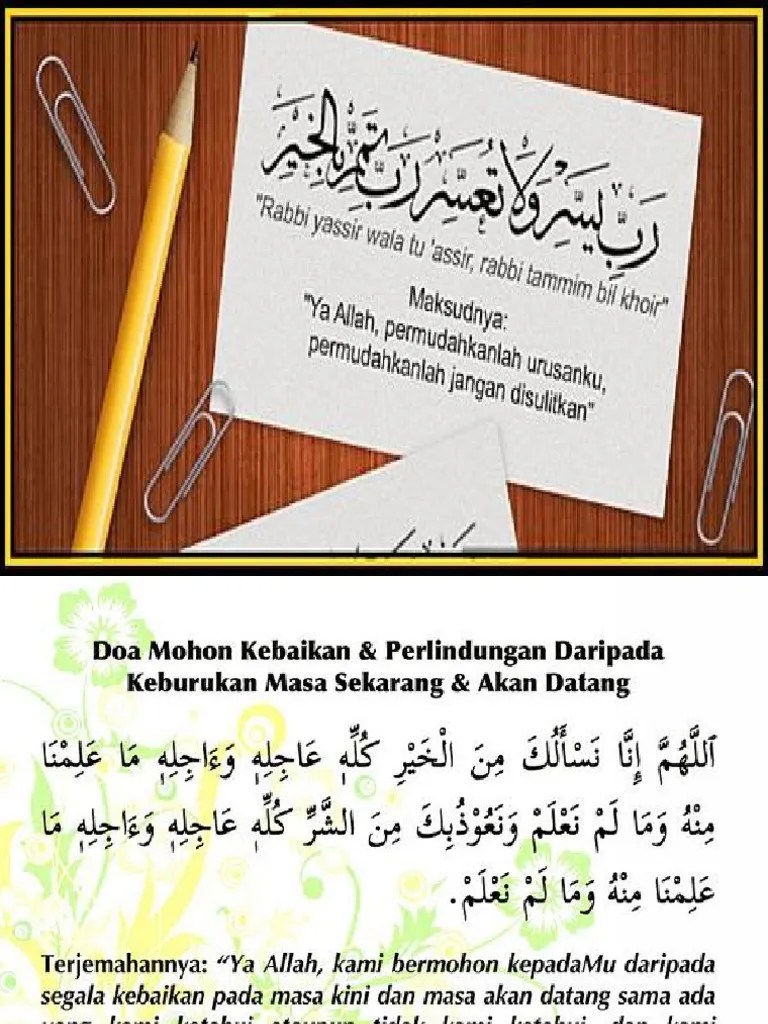 رَبِّ يَسِّرْ وَلَا تُعَسِّرْ رَبِّ تَمِّمْ بِالْخَيْرِ
"Rabbi yassir wala tu 'assir, rabbi tammim bil khoir"
Maksudnya:
"Ya Allah, permudahkanlah urusanku,
permudahkanlah jangan disulitkan"
Doa Mohon Kebaikan & Perlindungan Daripada
Keburukan Masa Sekarang & Akan Datang
ٱللَّهُمَّ إِنَّا نَسْأَلُكَ مِنَ الْخَيْرِ كُلِّهِ عَاجِلِهِ وَءَاجِلِهِ مَا عَلِمْنَا
مِنْهُ وَمَا لَمْ نَعْلَمْ وَنَعُوْذُبِكَ مِنَ الشَّرِّ كُلِّهِ عَاجِلِهِ وَءَاجِلِهِ مَا
عَلِمْنَا مِنْهُ وَمَا لَمْ نَعْلَمْ.
Terjemahannya: “Ya Allah, kami bermohon kepadaMu daripada
segala kebaikan pada masa kini dan masa akan datang sama ada
yang kami ketahui ataupun tidak kami ketahui, dan kami